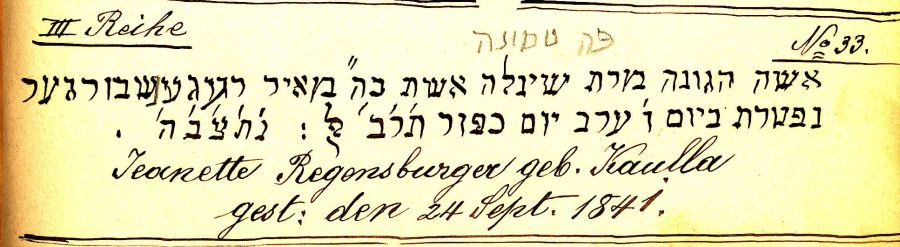 III Reihe פה טמונה No 33.
אשה הגונה מרת שינלה אשת כה" מאיר
נפטרת ביום ו' ערב יום כפור ת'ר'ב' ל: נ'ת'צ'ב'ה' .
Jeanette Regensburger geb. Kaulla
gest: den 24 Sept. 1841.